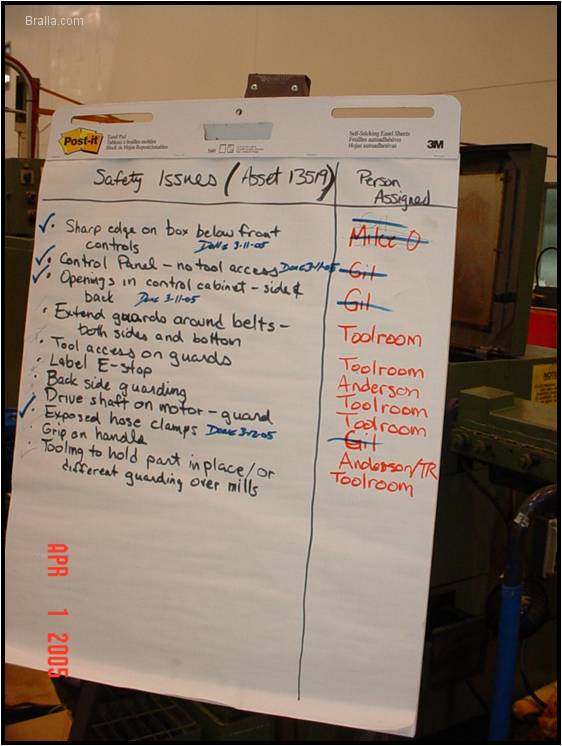 Bralla.com
Post-it
Easel Pad
Tableau à feuilles mobiles
Block de Hojas Reposicionables
Self-Sticking Easel Sheets
Feuilles autoadhésives
Hojas autoadhesivas
3M
Safety Issues (Asset 13519)
Person Assigned
Sharp edge on box below front
controls Done 3-11-05
Mike O
Control Panel - no tool access Done 3-11-05
Gil
Openings in control cabinet - side &
back Done 3-11-05
Gil
Extend guards around belts -
both sides and bottom
Toolroom
Tool access on guards
Toolroom
Label E-stop
Anderson
Back side guarding
Toolroom
Drive shaft on motor - guard
Toolroom
Exposed hose clamps Done 3-2-05
Gil
Grip on handle
Anderson/TR
Tooling to hold part in place/or
different guarding over mills
Toolroom
APR 1 2005